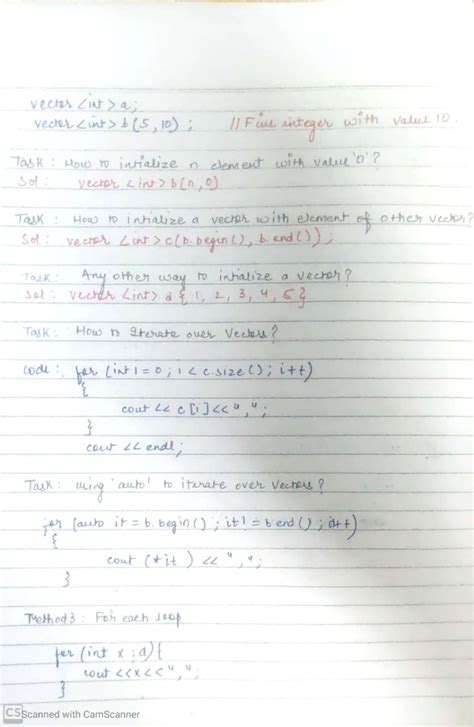 vector <int> a;
vector <int> b (5, 10) ; // Five integer with value 10.
Task : How to intialize n element with value '0' ?
Sol : vector <int> b(n, 0)
Task : How to intialize a vector with element of other vector?
Sol : vector <int> c(b.begin(), b.end()) ;
Task : Any other way to intialize a vector?
Sol : vector <int> a { 1, 2, 3, 4, 5 }
Task : How to Iterate over Vectors ?
Code : for (int i = 0 ; i < c.size() ; i++)
{
cout << c [i] << " , " ;
}
cout << endl ;
Task : using 'auto' to iterate over Vectors ?
for (auto it = b.begin() ; it != b.end() ; it++)
{
cout (*it ) << " , " ;
}
Method 3 : For each loop
for (int x : a) {
cout << x << " , " ;
}
CS Scanned with CamScanner